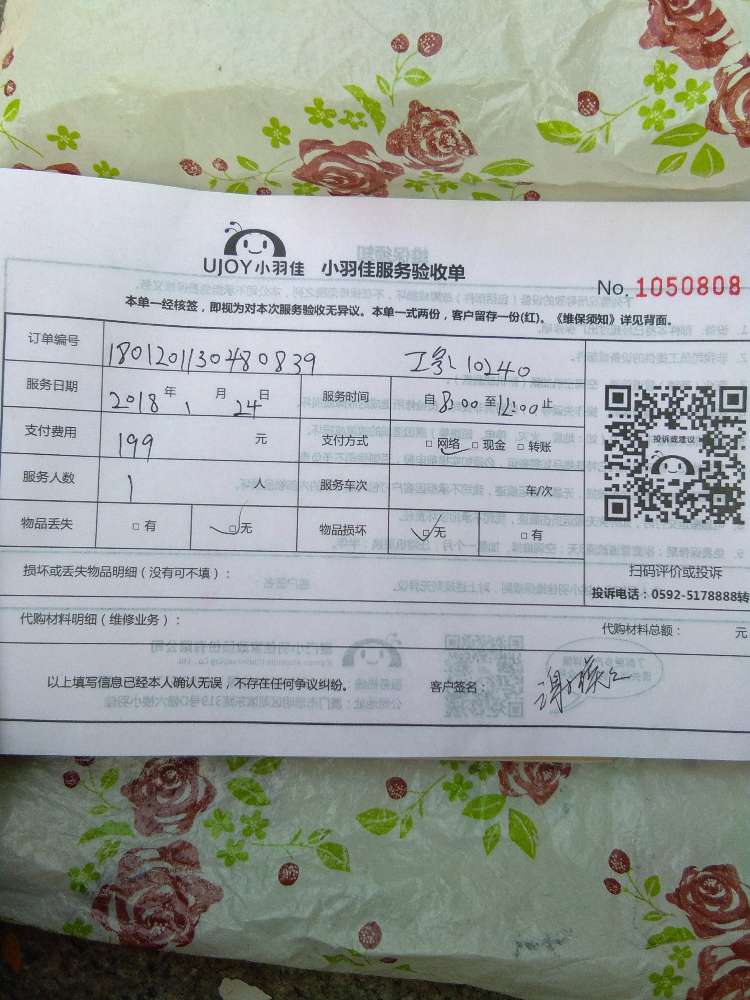 UJOY小羽佳 小羽佳服务验收单
No. 1050808
本单一经核签，即视为对本次服务验收无异议。本单一式两份，客户留存一份(红)。《维保须知》详见背面。
订单编号 1801201130480839 工号:10240
服务日期 2018年1月24日 服务时间 自8:00至12:00止
支付费用 199 元 支付方式 □网络 □现金 □转账
投诉或建议
服务人数 1 人 服务车次 车/次
物品丢失 □有 □无 物品损坏 □无 □有
损坏或丢失物品明细（没有可不填）：
扫码评价或投诉
投诉电话：0592-5178888转
代购材料明细（维修业务）：
代购材料总额： 元
以上填写信息已经本人确认无误，不存在任何争议纠纷。 客户签名：